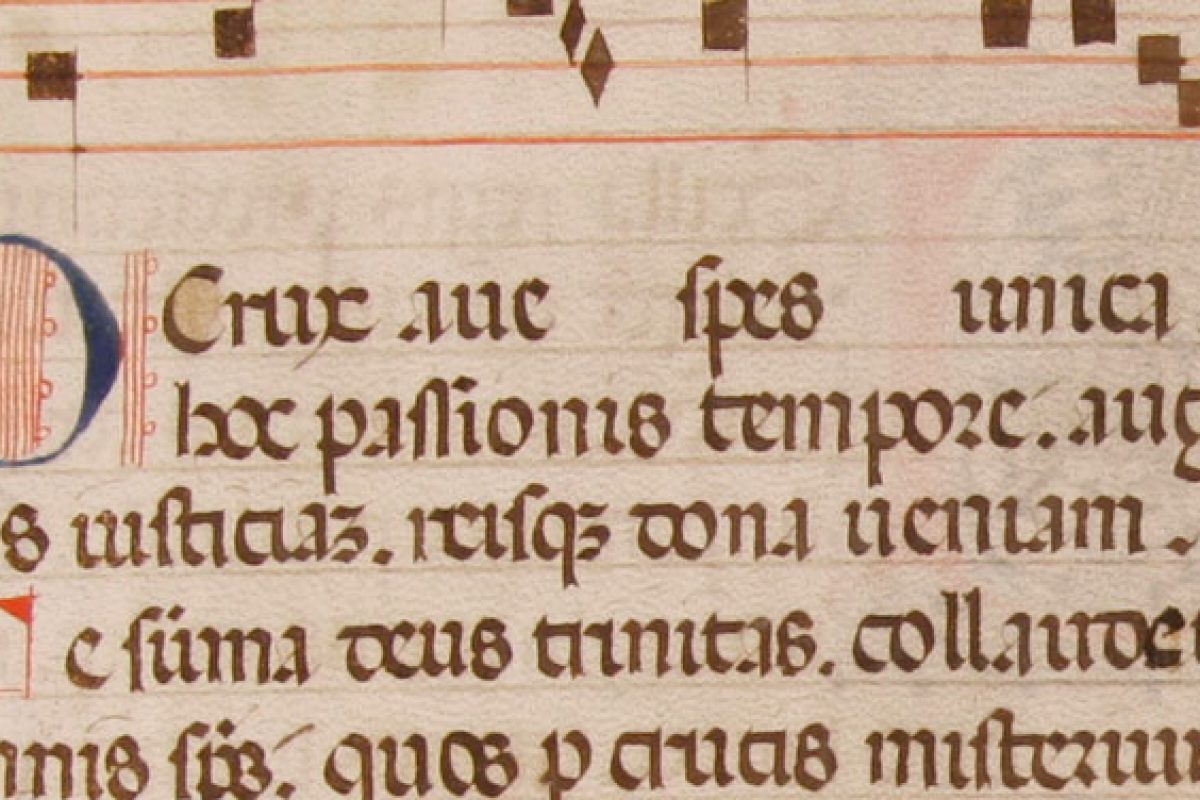 O Crux aue spes unica
hoc passionis tempore. aug
s iusticiaz. reisqz dona ueniam.
Te sūma deus trinitas. collaude
nnis sp̄s. quos p crucis misterium